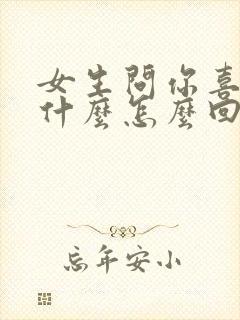 女生問你喜
什麼怎麼回
忘年安小